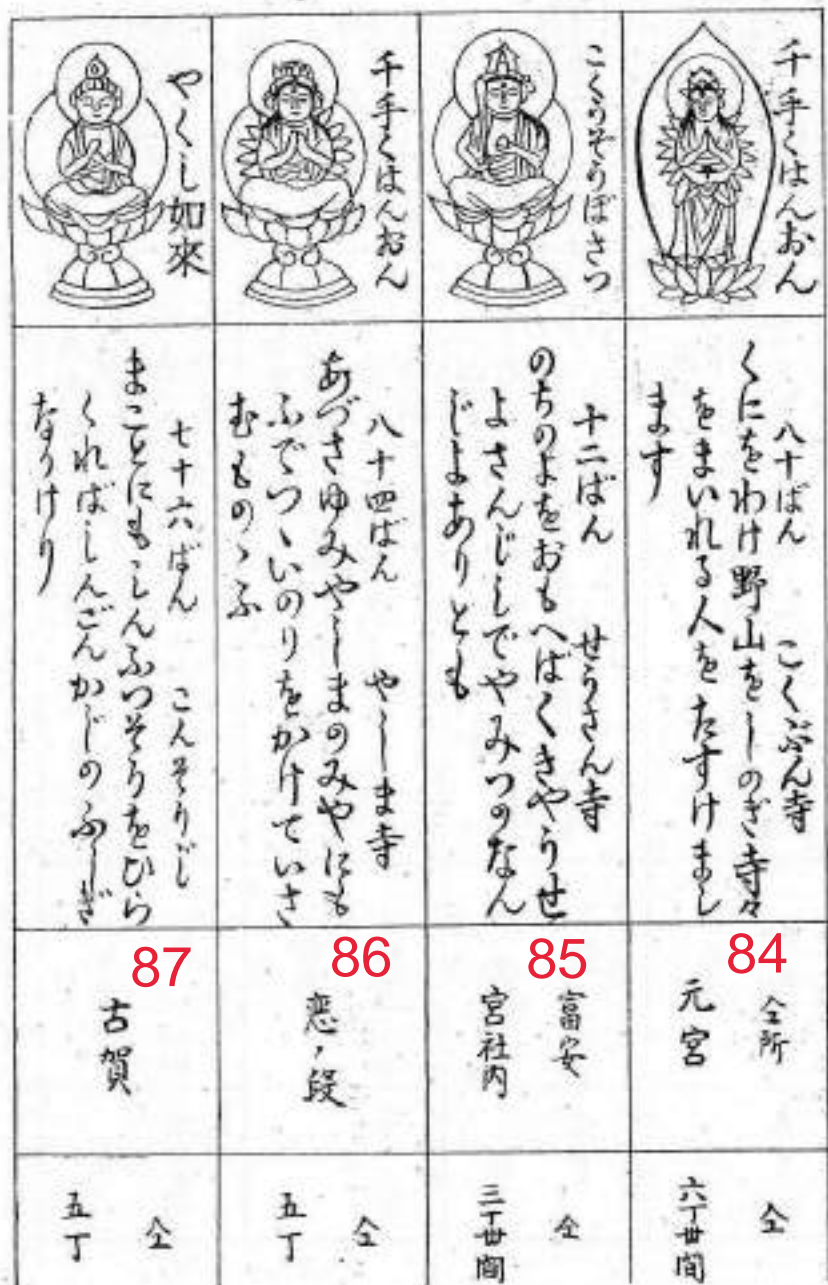 千手くはんおん
八十ばん　こくぶん寺
くにをわけ野山をしのぎ寺々
をまいれる人をたすけまし
ます
84
仝所
元宮
仝
六丁廿間
こくうぞうぼさつ
十二ばん　せうさん寺
のちのよをおもへばくぎやうせ
よさんじしでやみつのなん
じよありとも
85
富安
宮社内
仝
三丁廿間
千手くはんおん
八十四ばん　やしま寺
あづさゆみやしまのみやにも
ふでつゝいのりをかけていさ
むものゝふ
86
恋ノ段
仝
五丁
やくし如來
七十六ばん　こんぞうじ
まことにもしんふつそうをひら
くればしんごんかじのふしぎ
なりけり
87
古賀
仝
五丁